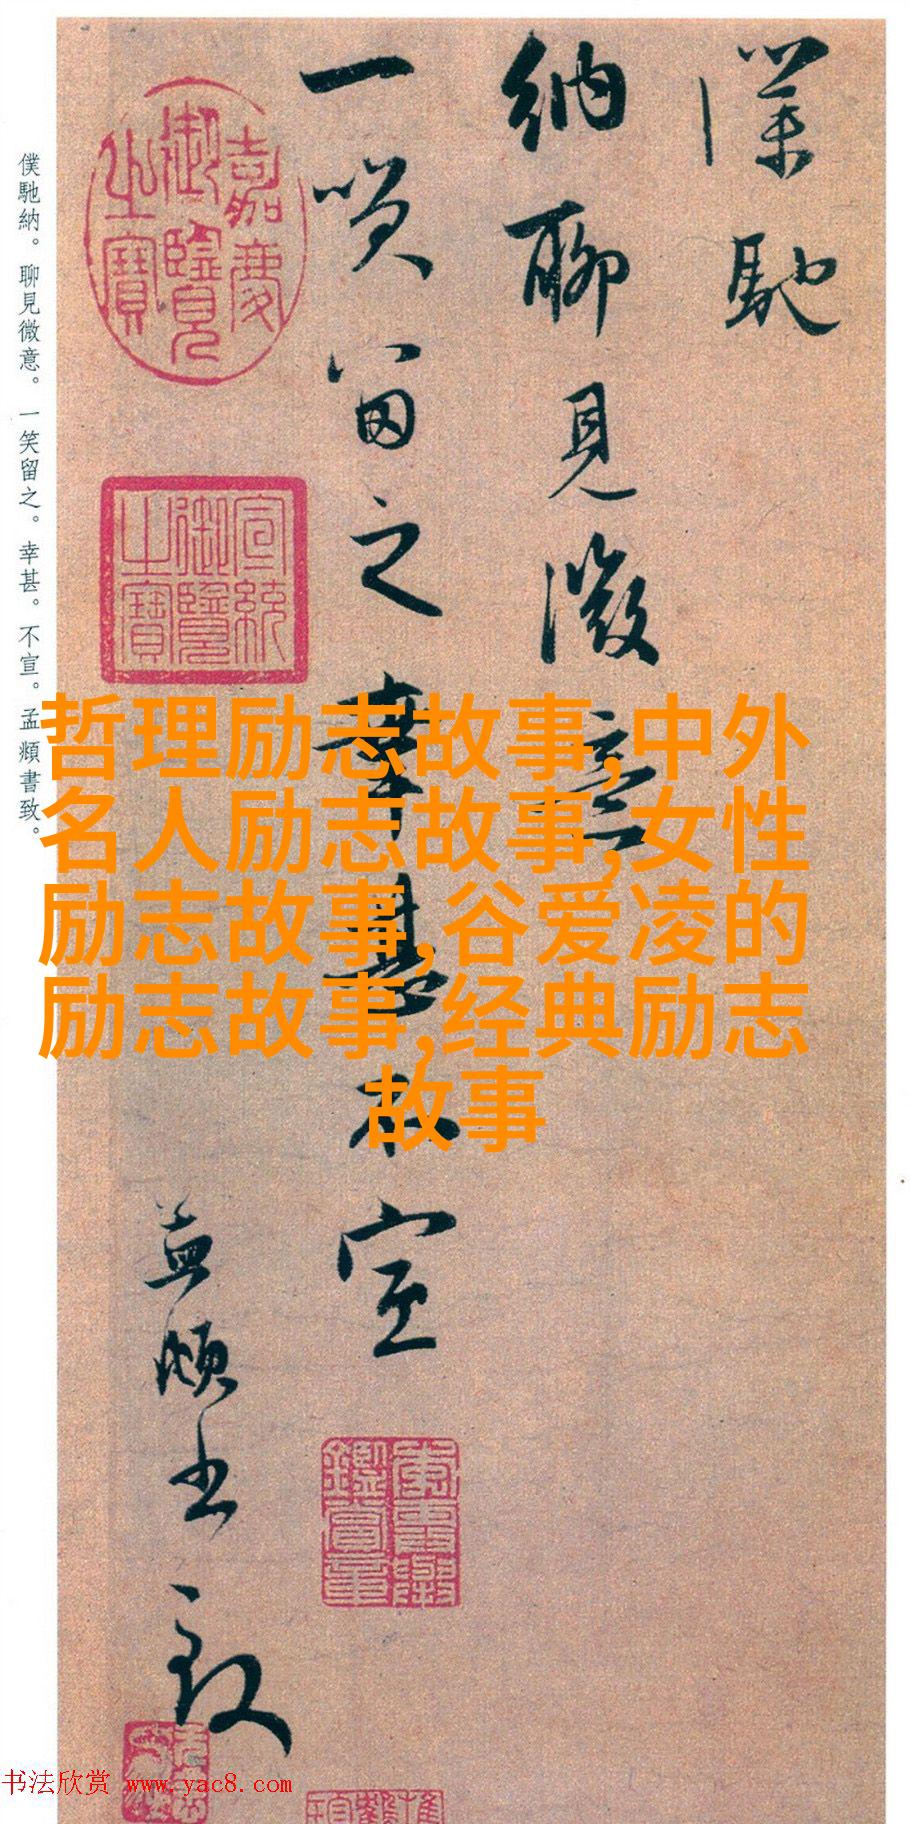 僕馳
納聊見微意
一笑留之幸甚不宣
孟頫書致
嘉慶御覽之寶
宣統御覽之寶
僕馳納。聊見微意。一笑留之。幸甚。不宣。孟頫書致。
哲理励志故事,中外
名人励志故事,女性
励志故事,谷爱凌的
励志故事,经典励志
故事
书法欣赏 www.yac8.com